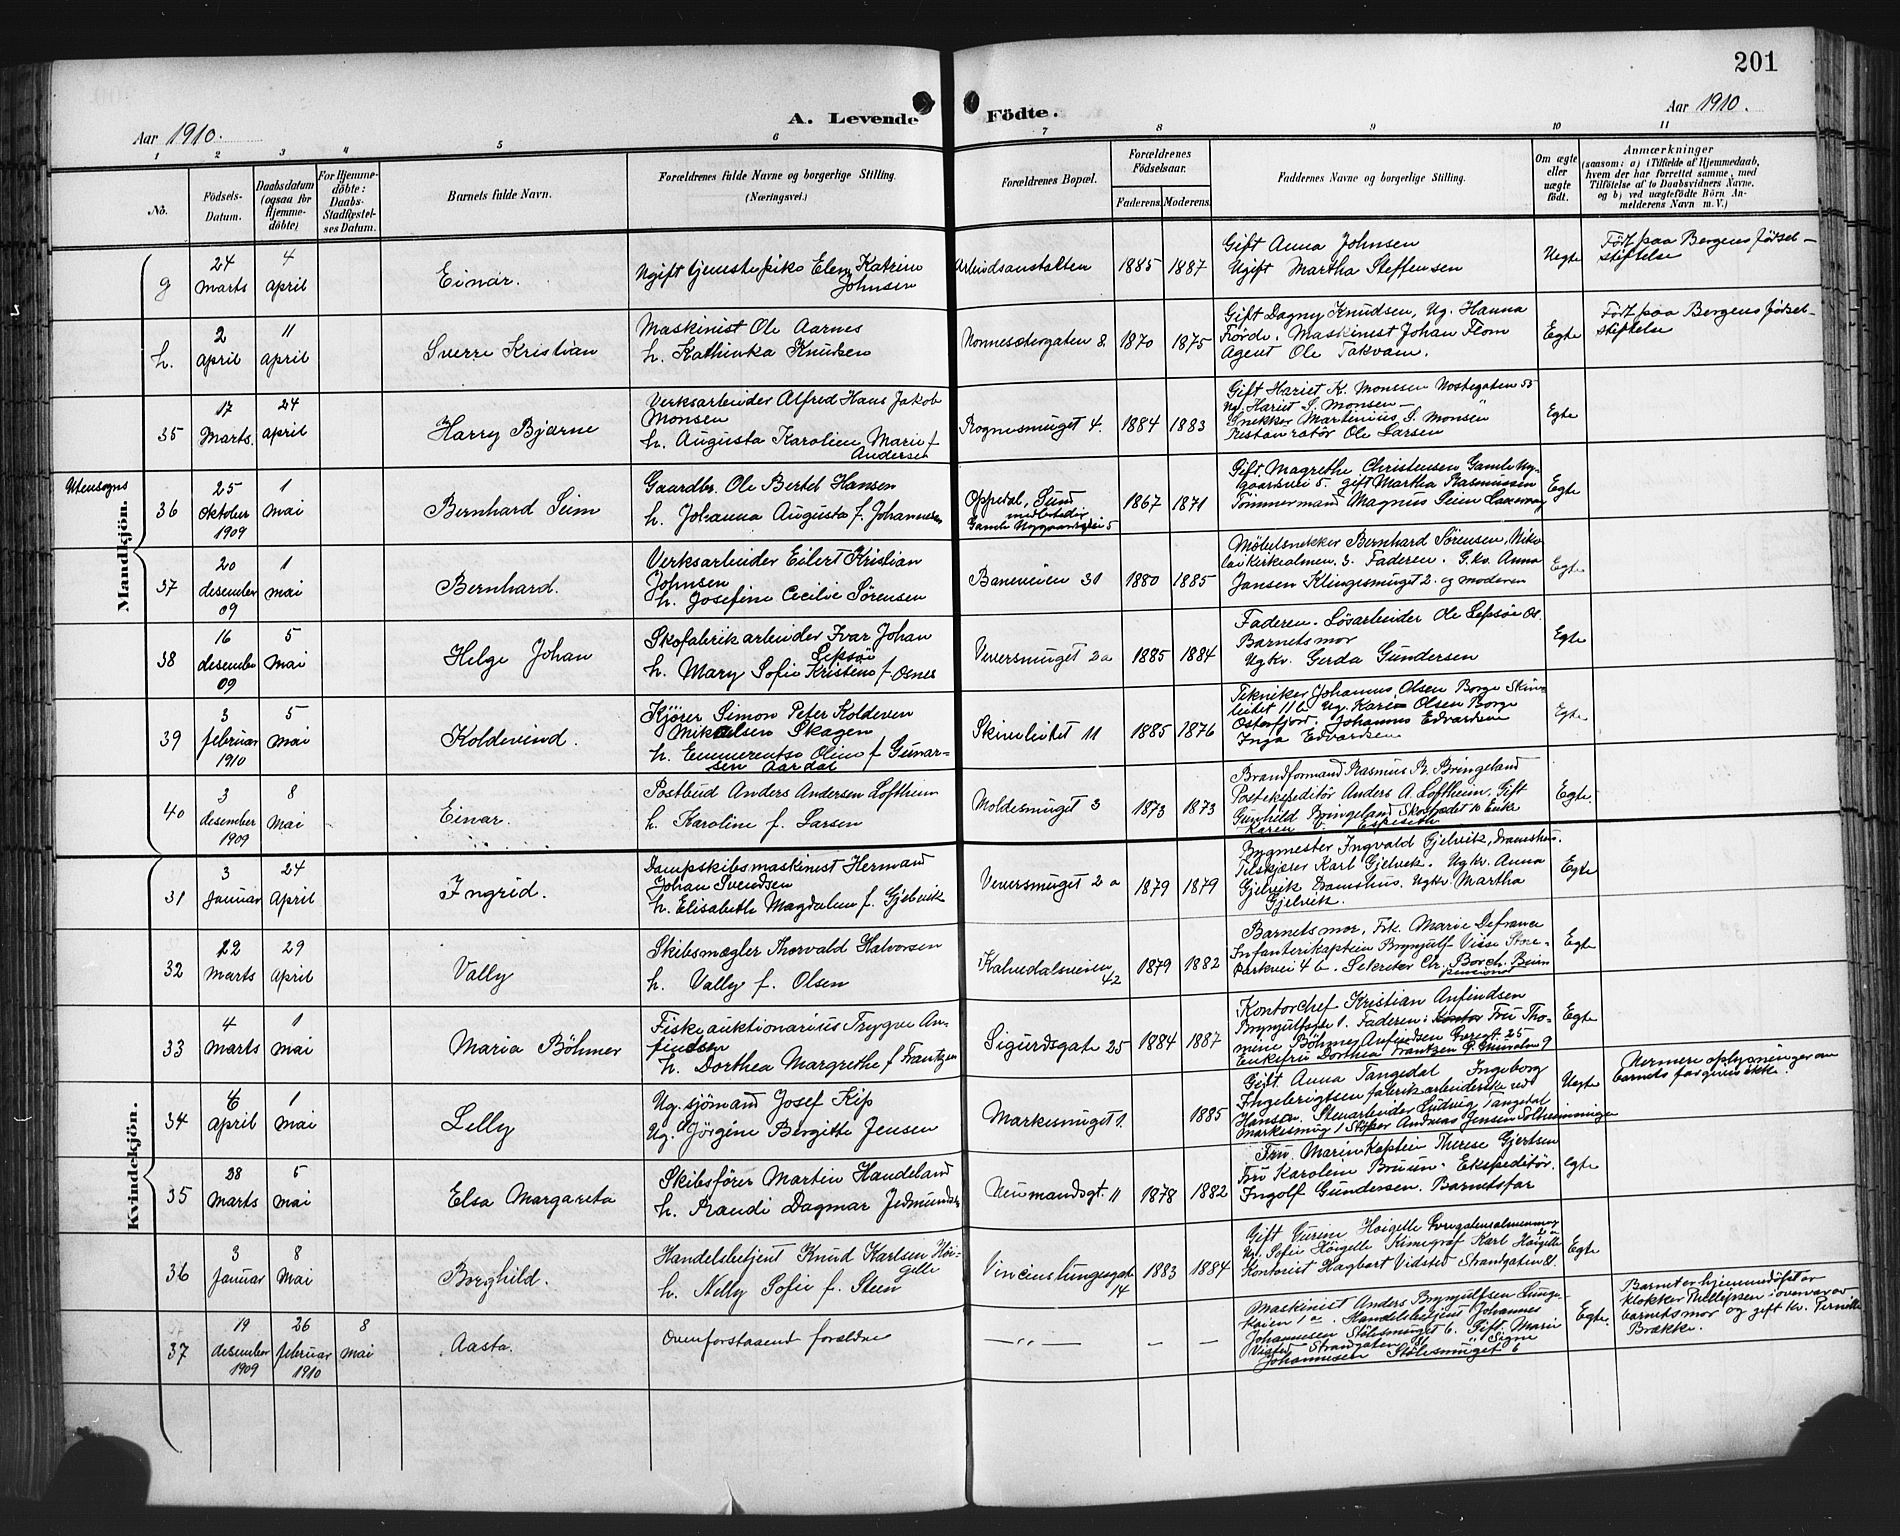 201
Aar 1910.
A. Levende Födte.
Aar 1910.
1 2 3 4 5 6 7 8 9 10 11
No.
Födsels-
Datum.
Daabsdatum
(ogsaa for
Hjemme-
döbte)
For Hjemme-
döbte:
Daabs-
Stadfæstel-
ses Datum.
Barnets fulde Navn.
Forældrenes fulde Navne og borgerlige Stilling.
(Næringsvei.)
Forældrenes Bopæl.
Forældrenes
Födselsaar.
Faderens. Moderens.
Faddernes Navne og borgerlige Stilling.
Om ægte
eller
uægte
født.
Anmærkninger
(saasom: a) i Tilfælde af Hjemmedaab,
hvem der har forrettet samme, med
Tilföielse af to Daabsvidners Navne,
og b) ved uægtefödte Börn An-
melderens Navn m. V.)
Mandkjön.
g
24
Marts
4
April
Einar.
Ugift tjenestepike Eleny Katrine
Johnsen
Arbeidsanstalten
1885 1887
Gift Anna Johnsen
Ugift Martha Steffensen
Uegte
Født paa Bergens fødsel-
stiftelse
h.
2
April
11
April
Sverre Kristian
Maskinist Ole Aarnes
h. Kathinka Knudsen
Nonnesetergaten 8
1870 1875
Gift Dagny Knudsen, Ug. Hanna
Förde, Maskinist Johan Flom
Agent Ole Takvam.
Egte
Født paa Bergens fødsel-
stiftelse
35
17
Marts
24
April
Harry Bjarne
Verksarbeider Alfred Hans Jakob
Monsen
h. Augusta Karoline Marie f
Andersen
Rognesmuget 4.
1884 1883
Gift Hariet K. Monssen Nostegaten 53
Ug. Hariet S. Monsen
Snekker Martinius S. Monsen
Restauratör Ole Larsen
Egte
Utensogns
36
25
Oktober
1909
1
Mai
Bernhard Seim
Gaardbr. Ole Bertel Hansen
h. Johanna Augusta f. Johannesen
Oppedal, Sund
Gamle Nygaardsvei 5
1867 1871
Gift Magrethe Christensen Gamle Ny-
gaardsvei 5. gift Martha Rasmussen
Tömmermand Magnus Seim Laxevaag
Egte
37
20
desember
09
1
Mai
Bernhard.
Verksarbeider Eilert Kristian
Johnsen
h. Josefine Cecilie Sörensen
Baneveien 31
1880 1885
Möbelsnekker Bernhard Sörensen, Niko-
laikirkealmen. 3. Faderen. G.kv. Anna
Jansen Klingesmuget 2. og moderen
Egte
38
16
desember
09
5
Mai
Helge Johan
Skofabrikarbeider Ivar Johan
Lepsöe
h. Mary Sofie Kristens f Osnes
Veversmuget 2a
1885 1884
Faderen. Lösarbeider Ole Lepsöe
Barnets mor
Ugkv. Gerda Gundersen
Egte
39
3
februar
1910
5
Mai
Koldevind.
Kjörer Simon Peter Koldeven
Mikalsen Skagen
h. Emmerentse Oline f Gunar-
sen Aardal
Skiveleitet 11
1885 1876
Tekniker Johannes Olsen Borge Skive-
leitet 11b Ug. Kari Olsen Borge
Osterfjord. Johannes Edvardsen
Inga Edvardsen
Egte
40
3
desember
1909
8
Mai
Einar.
Postbud Anders Andersen Loftheim
h. Karoline f. Larsen
Moldesmuget 3
1873 1873
Brandformand Rasmus R. Bringeland
Postekspeditör Anders A. Loftheim. Gift
Gunhild Bringeland Skostredet 10 Enke
Karen
Egte.
Kvindekjön.
31
3
Januar
24
April
Ingrid.
Dampskibsmaskinist Herman
Johan Svendsen
h. Elisabeth Magdalene f. Gjelvik
Veversmuget 2a
1879 1879
Bygmester Ingvald Gjelvik, Damshus.
Tilskjærer Karl Gjelvik. Ugkv. Anna
Gjelvik Damshus. Ugkv. Martha
Gjelvik.
Egte
32
22
Marts
29
April
Vally
Skibsmægler Thorvald Halvorsen
h. Vally f. Olsen
Kalvedalsveien
42
1879 1882
Barnets mor, Frk. Marie Defrance
Infanterikaptein Brynjulf Visse Store-
Parkvei 4 b. Sekretær Chr. Borch. Beim
Egte
33
4
Marts
1
Mai
Maria Böhmer
Fiskeauktionarius Trygve An-
findsen
h. Dorthea Margrethe f Frantzen
Sigurdsgate 25
1884 1887
Kontorchef Kristian Anfindsen
Brynjulfsgt 1. Faderen. Fru Tho-
mine Böhmer Anfindsen 25
Enkefru Dorthea Frantzen 9
Egte
34
6
April
1
Mai
Lelly
Ug. sjömand Josef Kip
Ug. Jörgine Bergitte Jensen
Markesmuget 1.
1885
Gift. Anna Tangedal Ingeborg
Ingebrigtsen fabrikarbeiderske ved
Hansen. Stenarbeider Ludvig Tangedal
Markesmug 1 Andreas Jensen
Uegte
Nermere oplysninger om
barnets far gives ikke.
35
28
Marts
5
Mai
Elsa Margareta
Skibsförer Martin Handeland
h. Randi Dagmar
Neumandsgt. 11
1878 1882
Fru Marinkaptein Therese Gjertsen
Fru Karoline Bruun. Ekspeditör
Ingolf Gundersen. Barnets far
Egte
36
3
Januar
8
Mai
Borghild.
Handelsbetjent Knud Karlsen Höi-
gelle
h. Nelly Sofie f. Steen
Vincenslungesgate
14
1883 1884
Gift Gurine Höigelle
Ug. Sofie Höigelle Karl Höigelle
Kontorist Hagbart Vidsted Strandgaten
Egte
37
19
desember
1909
26
februar
1910
8
Mai
Aasta.
Ovenforstaaend foreldre
— „ —
— —
Maskinist Anders Brynjulfsen Lunge-
kaien 1a. Handelsbetjent Johannes
Johannesen Stölesmuget 6. Gift. Marie
Visted Strandgaten Signe
Johannesen Stölesmuget 6
Egte.
Barnet er hjemmedöpt av
klokker Phillipsen i overvær av
barnets mor og gift kv. Pernille
Brække.